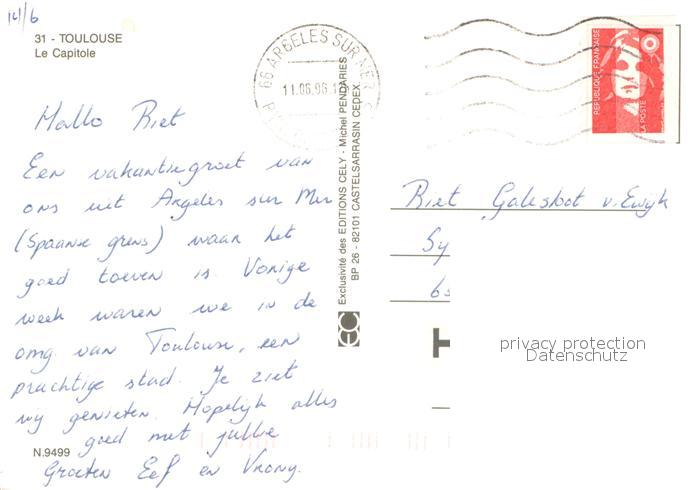 14/6
31 - TOULOUSE
Le Capitole
66 ARGELES SUR MER
11.06.96
REPUBLIQUE FRANÇAISE
LA POSTE
Hallo Riet
Een vakantiegroet van
ons uit Argeles sur Mer
(Spaanse grens) waar het
goed toeven is. Vorige
week waren we in de
omg van Toulouse, een
prachtige stad. Je ziet
wij genieten. Hopelijk alles
goed met jullie
Groeten Eef en Vrony.
N.9499
Exclusivité des EDITIONS CELY - Michel PENDARIES
BP 26 - 82101 CASTELSARRASIN CEDEX
Riet Galesloot v. Ewijk
Sy
6
privacy protection
Datenschutz